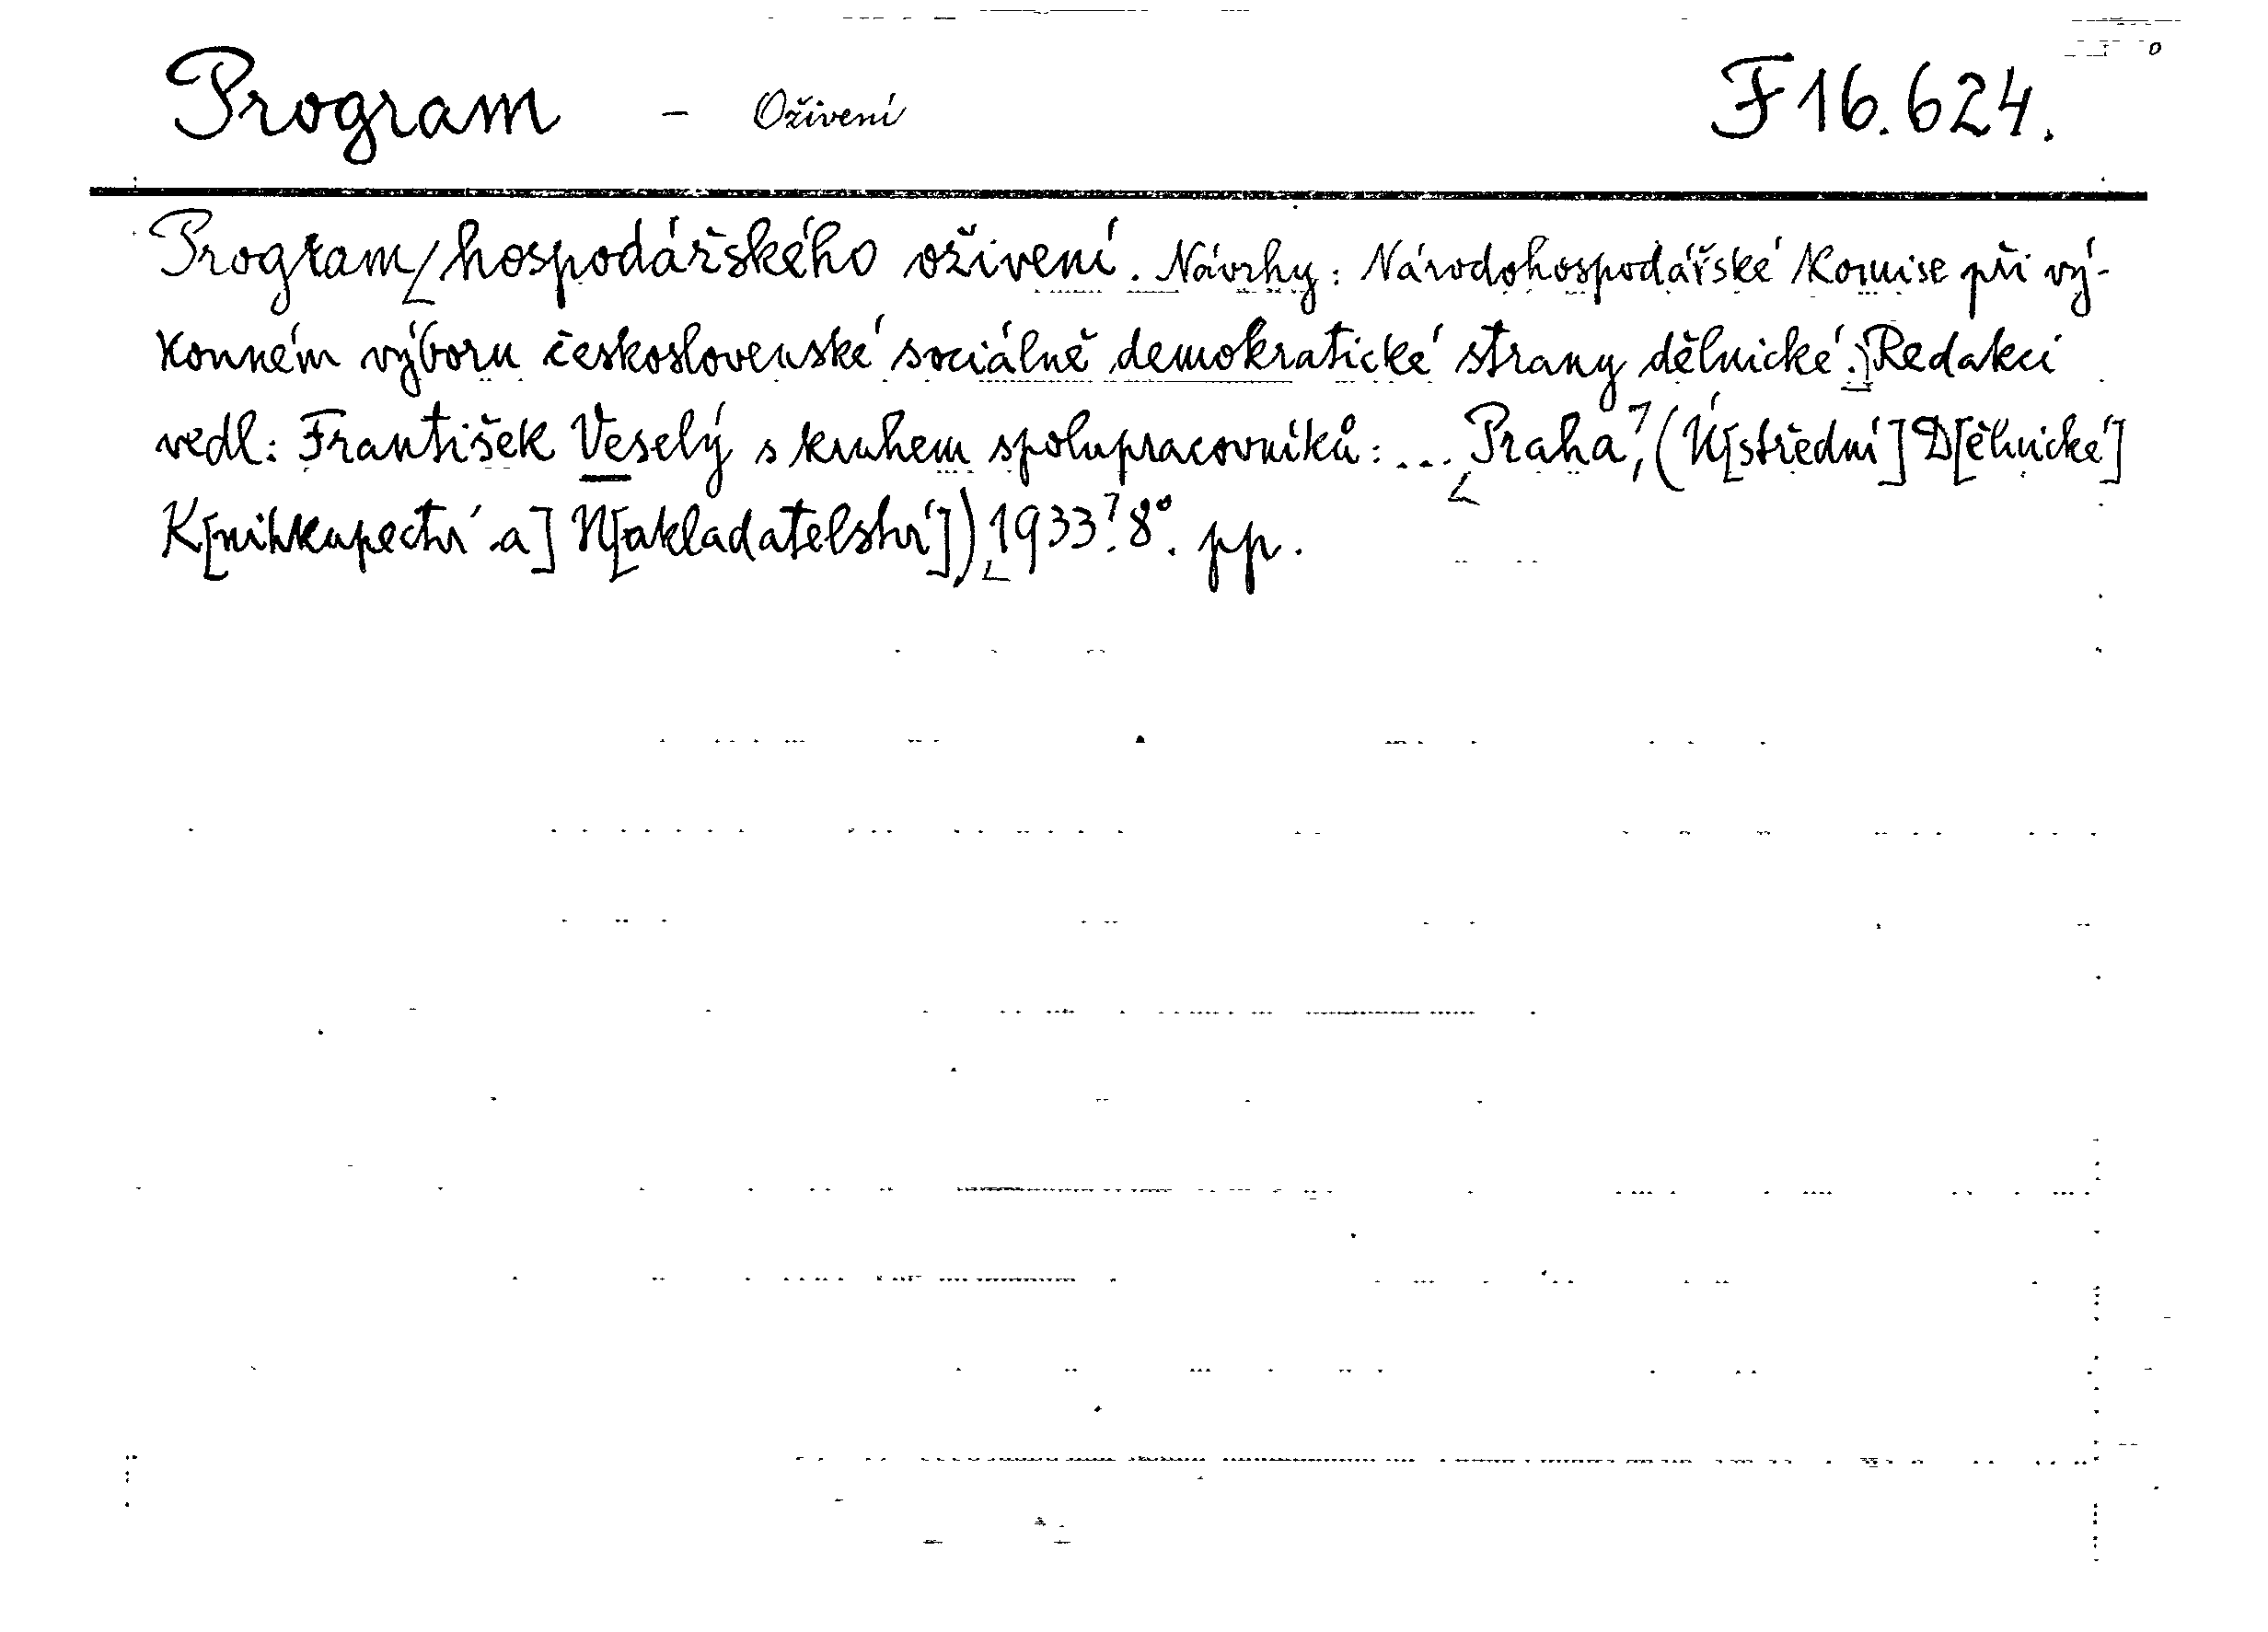 Program - Oživení F 16.624.
Program hospodářského oživení. Návrhy: Národohospodářské Komise při vý-
konném výboru československé sociálně demokratické strany dělnické. Redakcí
vedl: František Veselý s kruhem spolupracovníků: ... Praha, (Ú[střední] D[ělnické]
K[nihkupectví a] N[akladatelství]) 1933. 8°. pp.